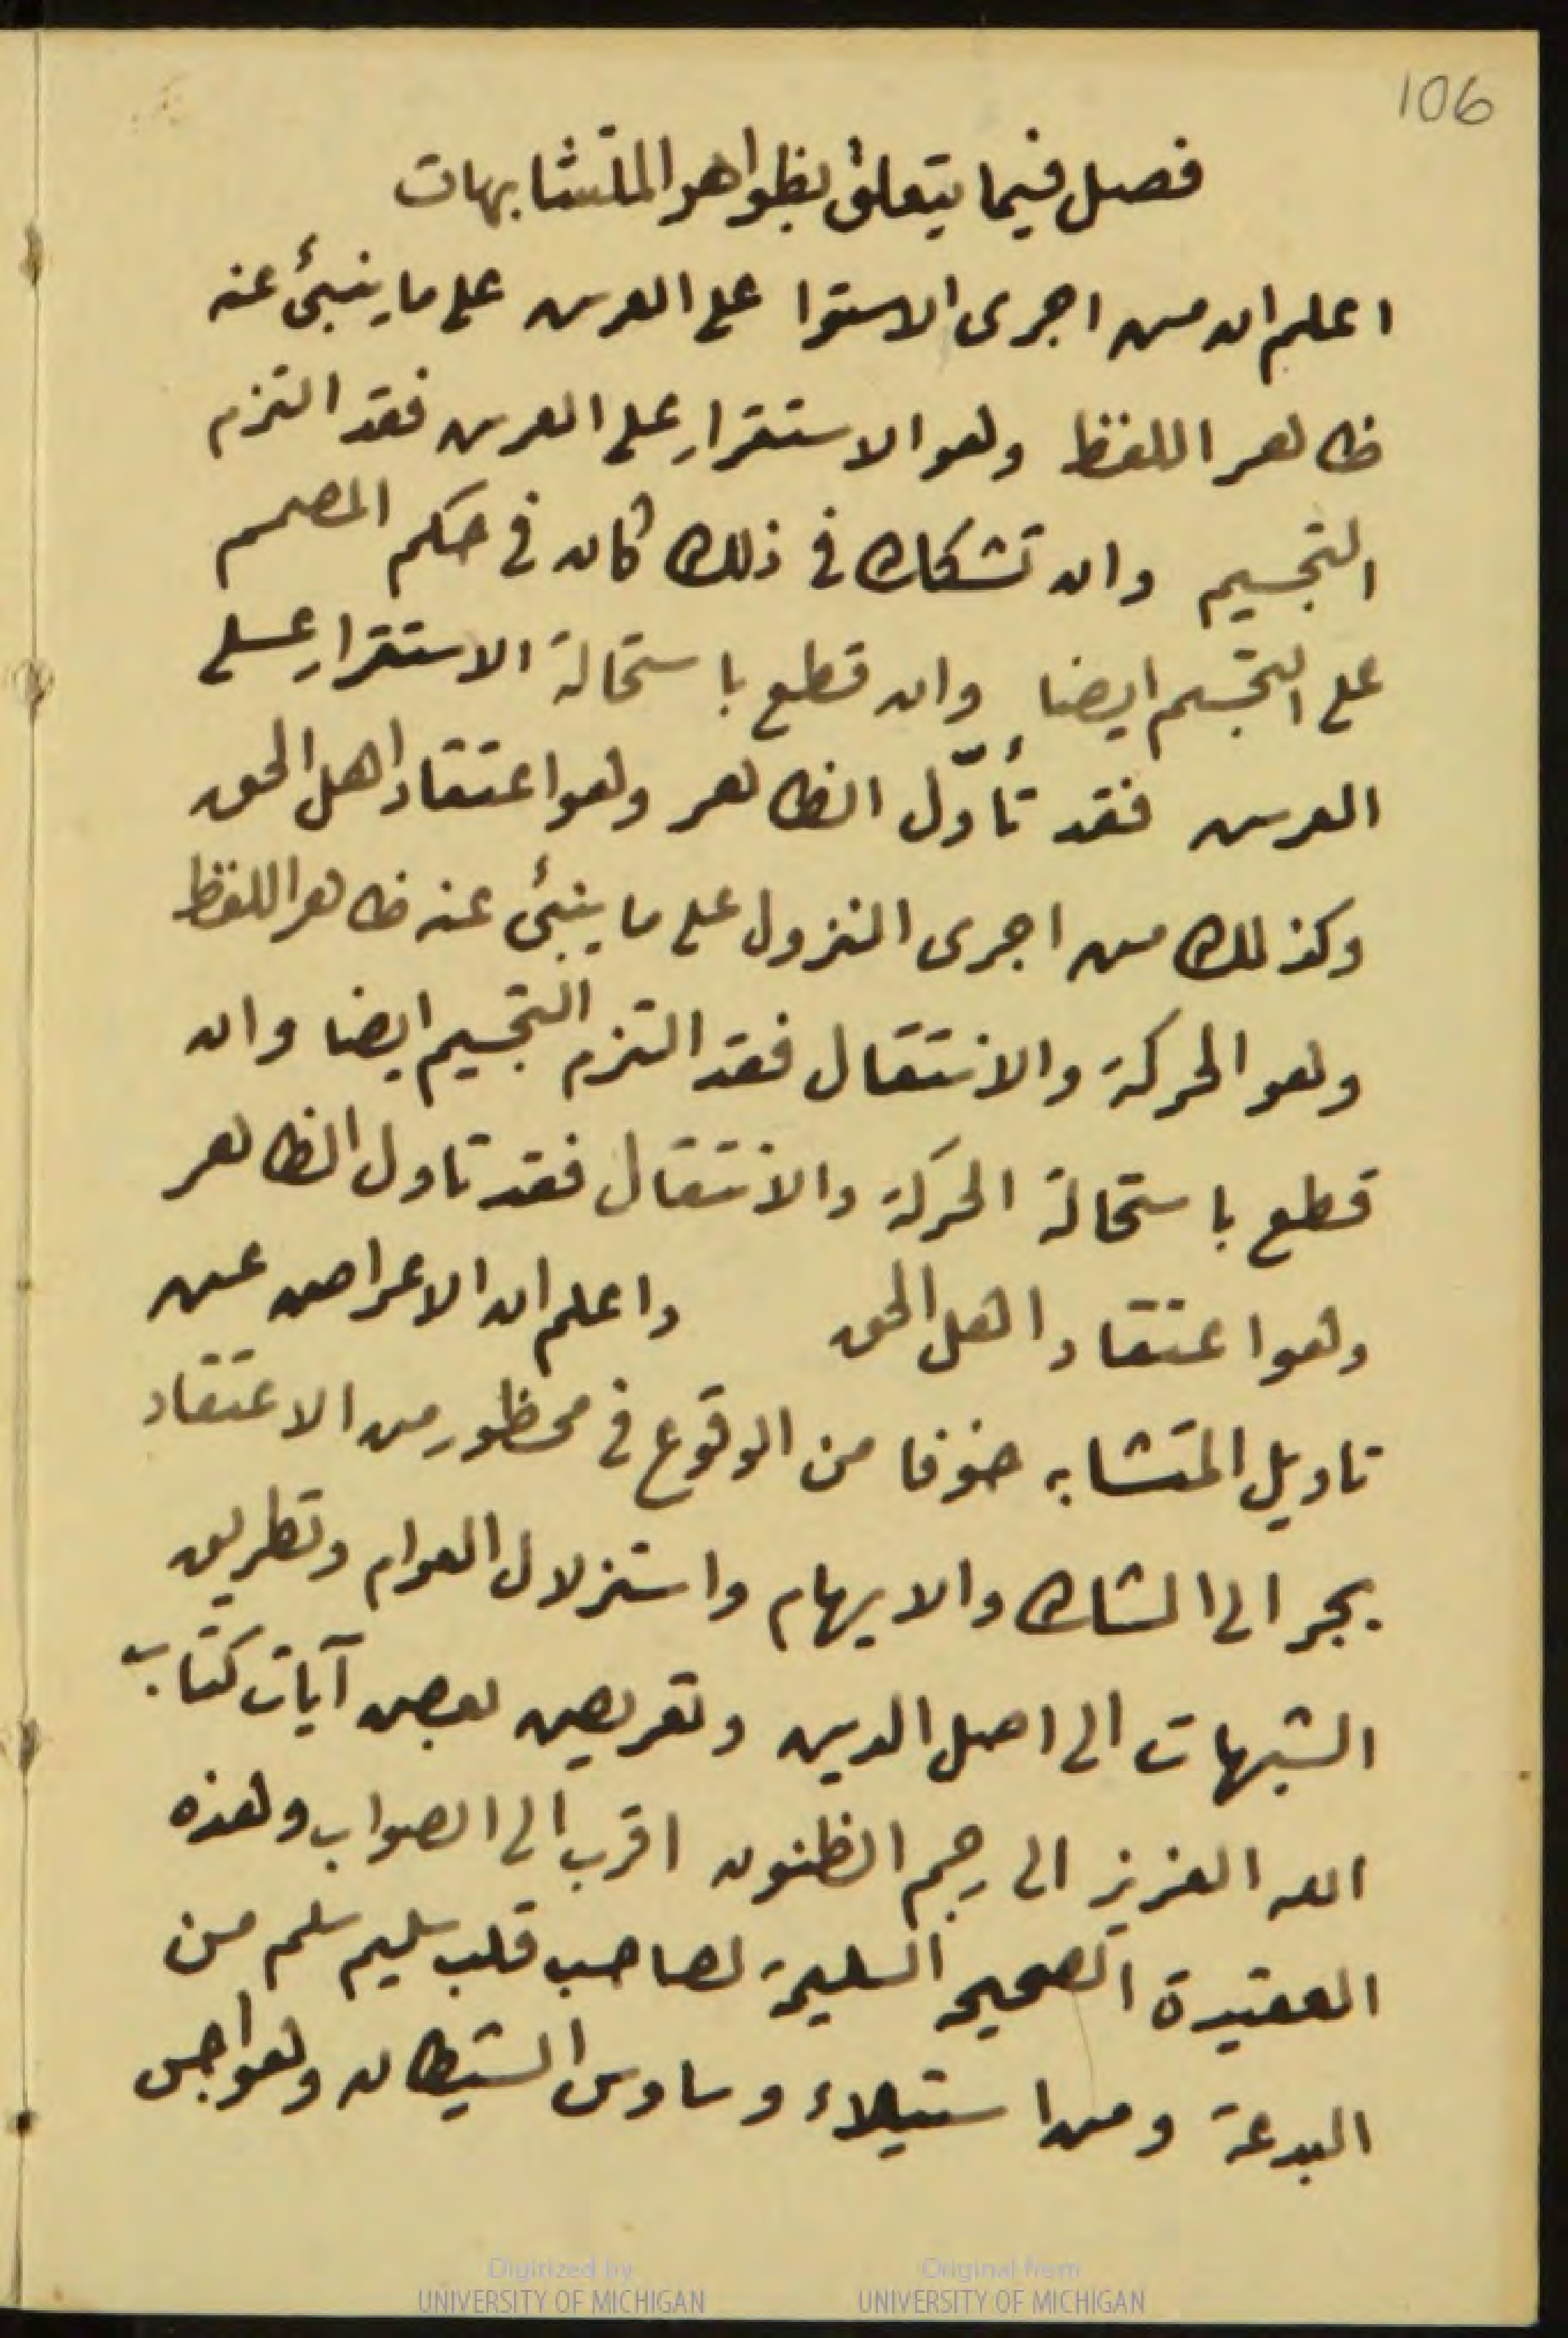 106
فصل فيما يتعلق بظواهر المتشابهات
اعلم ان من اجرى الاستوا على العرش على ما ينبئ عنه
ظاهر اللفظ وهو الاستقرار على العرش فقد التزم
التجسيم وان تشكك في ذلك كان في حكم المصمم
على التجسيم ايضا وان قطع باستحالة الاستقرار على
العرش فقد تأوّل الظاهر وهو اعتقاد اهل الحق
وكذلك من اجرى النزول على ما ينبئ عنه ظاهر اللفظ
وهو الحركة والانتقال فقد التزم التجسيم ايضا وان
قطع باستحالة الحركة والانتقال فقد تاول الظاهر
وهو اعتقاد اهل الحق واعلم ان الاعراض عن
تاويل المتشابه خوفا من الوقوع في محظور من الاعتقاد
يجر الى الشك والايهام واستزلال العوام وتطريق
الشبهات الى اصل الدين وتعريض بعض آيات كتاب
الله العزيز الى رجم الظنون اقرب الى الصواب وهذه
العقيدة الصحيحه السليمة لصاحب قلب سليم سلم من
البدعة ومن استيلاء وساوس الشيطان وهواجس
Digitized by
UNIVERSITY OF MICHIGAN
Original from
UNIVERSITY OF MICHIGAN